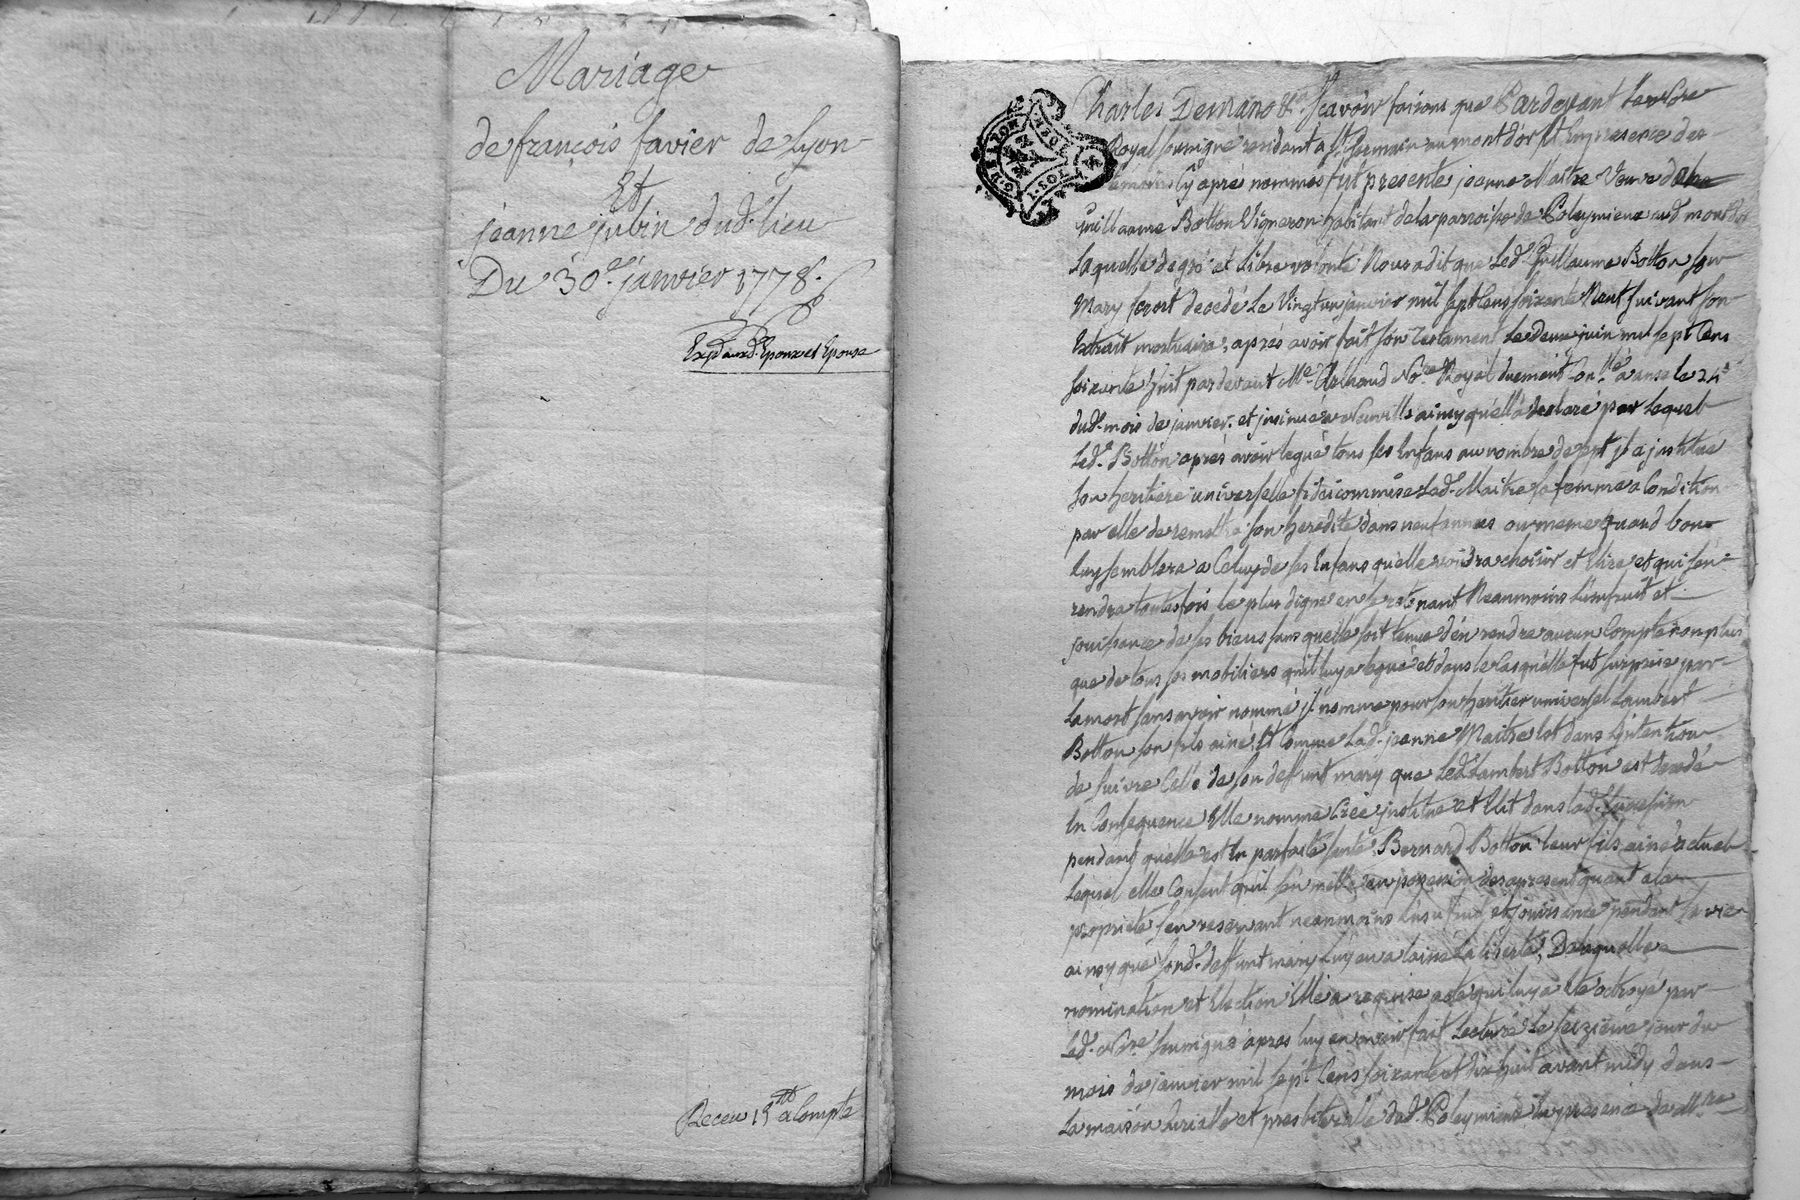 Mariage
de françois favier de Lyon
Et
jeanne jubin dud. lieu
Du 30e. janvier 1778.
Expd aux d. Epoux et Epouse
Receu 15tt a Compte
Charles Demano &a sçavoir faisons que Pardevant Le nore
Royal soussigné residant a St. Germain au mont d'or Et En presence des
temoins cy apré nommes fut presente, jeanne Maitre Veuve de
guillaume Botton Vigneron habitant de la parroisse de Poleymieux aud. mont d'or
Laquelle de gré et libre volonté Nous a dit que Led. Guillaume Botton son
Mary seroit decedé Le Vingt un janvier mil sept Cens soixante Neuf suivant son
Extrait mortuaire, aprés avoir fait son Testament Le deux juin mil sept Cens
soixante huit par devant Me. No.re Royal duement con.llé a anse le 24e
dud. mois de janvier. et insinué a Neuville ainsy qu'ell'a declaré par Lequel
Led. Botton aprés avoir legué tous ses Enfans au nombre de sept jl a jnstitue
son heritiere universelle fideicommise Lad. Maitre sa femme a Condition
par elle de remettre son heredité dans neuf années ou meme quand bon
luy semblera a Celuy de ses Enfans qu'elle voudra choisir et Elire et qui s'en
rendra toutesfois Le plus digne en se retenant Neanmoins L'usufruit et
jouissance de ses biens sans qu'elle soit tenue d'en rendre aucun Compte non plus
que de tous ses mobiliers qu'il luy a legué et dans le Cas qu'elle fut surprise par
La mort sans avoir nommé jl nomme pour son heritier universel Lambert
Botton son fils ainé. Et Comme Lad. jeanne Maitre Est dans L'jntention
de suivre Celle de son deffunt mary que Led. Lambert Botton est decedé
En Consequence Elle nomme Crée jnstitue et Elit dans lad.
pendant qu'elle est En parfaite santé Bernard Botton leur fils ainé actuel
Lequel elle Consent qu'il s'en mette en possession des apresent quant a la
proprieté s'en reservant neanmoins L'usufruit et jouissance pendant sa vie
ainsy que sond. deffunt mary Luy en a laissé La liberté, De laquelle
nomination et Election Elle a requise acte qui luy a Eté octroyé par
Led. No.re soussigné apres luy en avoir fait Lecture Le seizieme jour du
mois de janvier mil sept Cens soixante et dix huit avant midy dans
La maison Curialle et presbiteralle dud. Poleymieux En presence de M.re